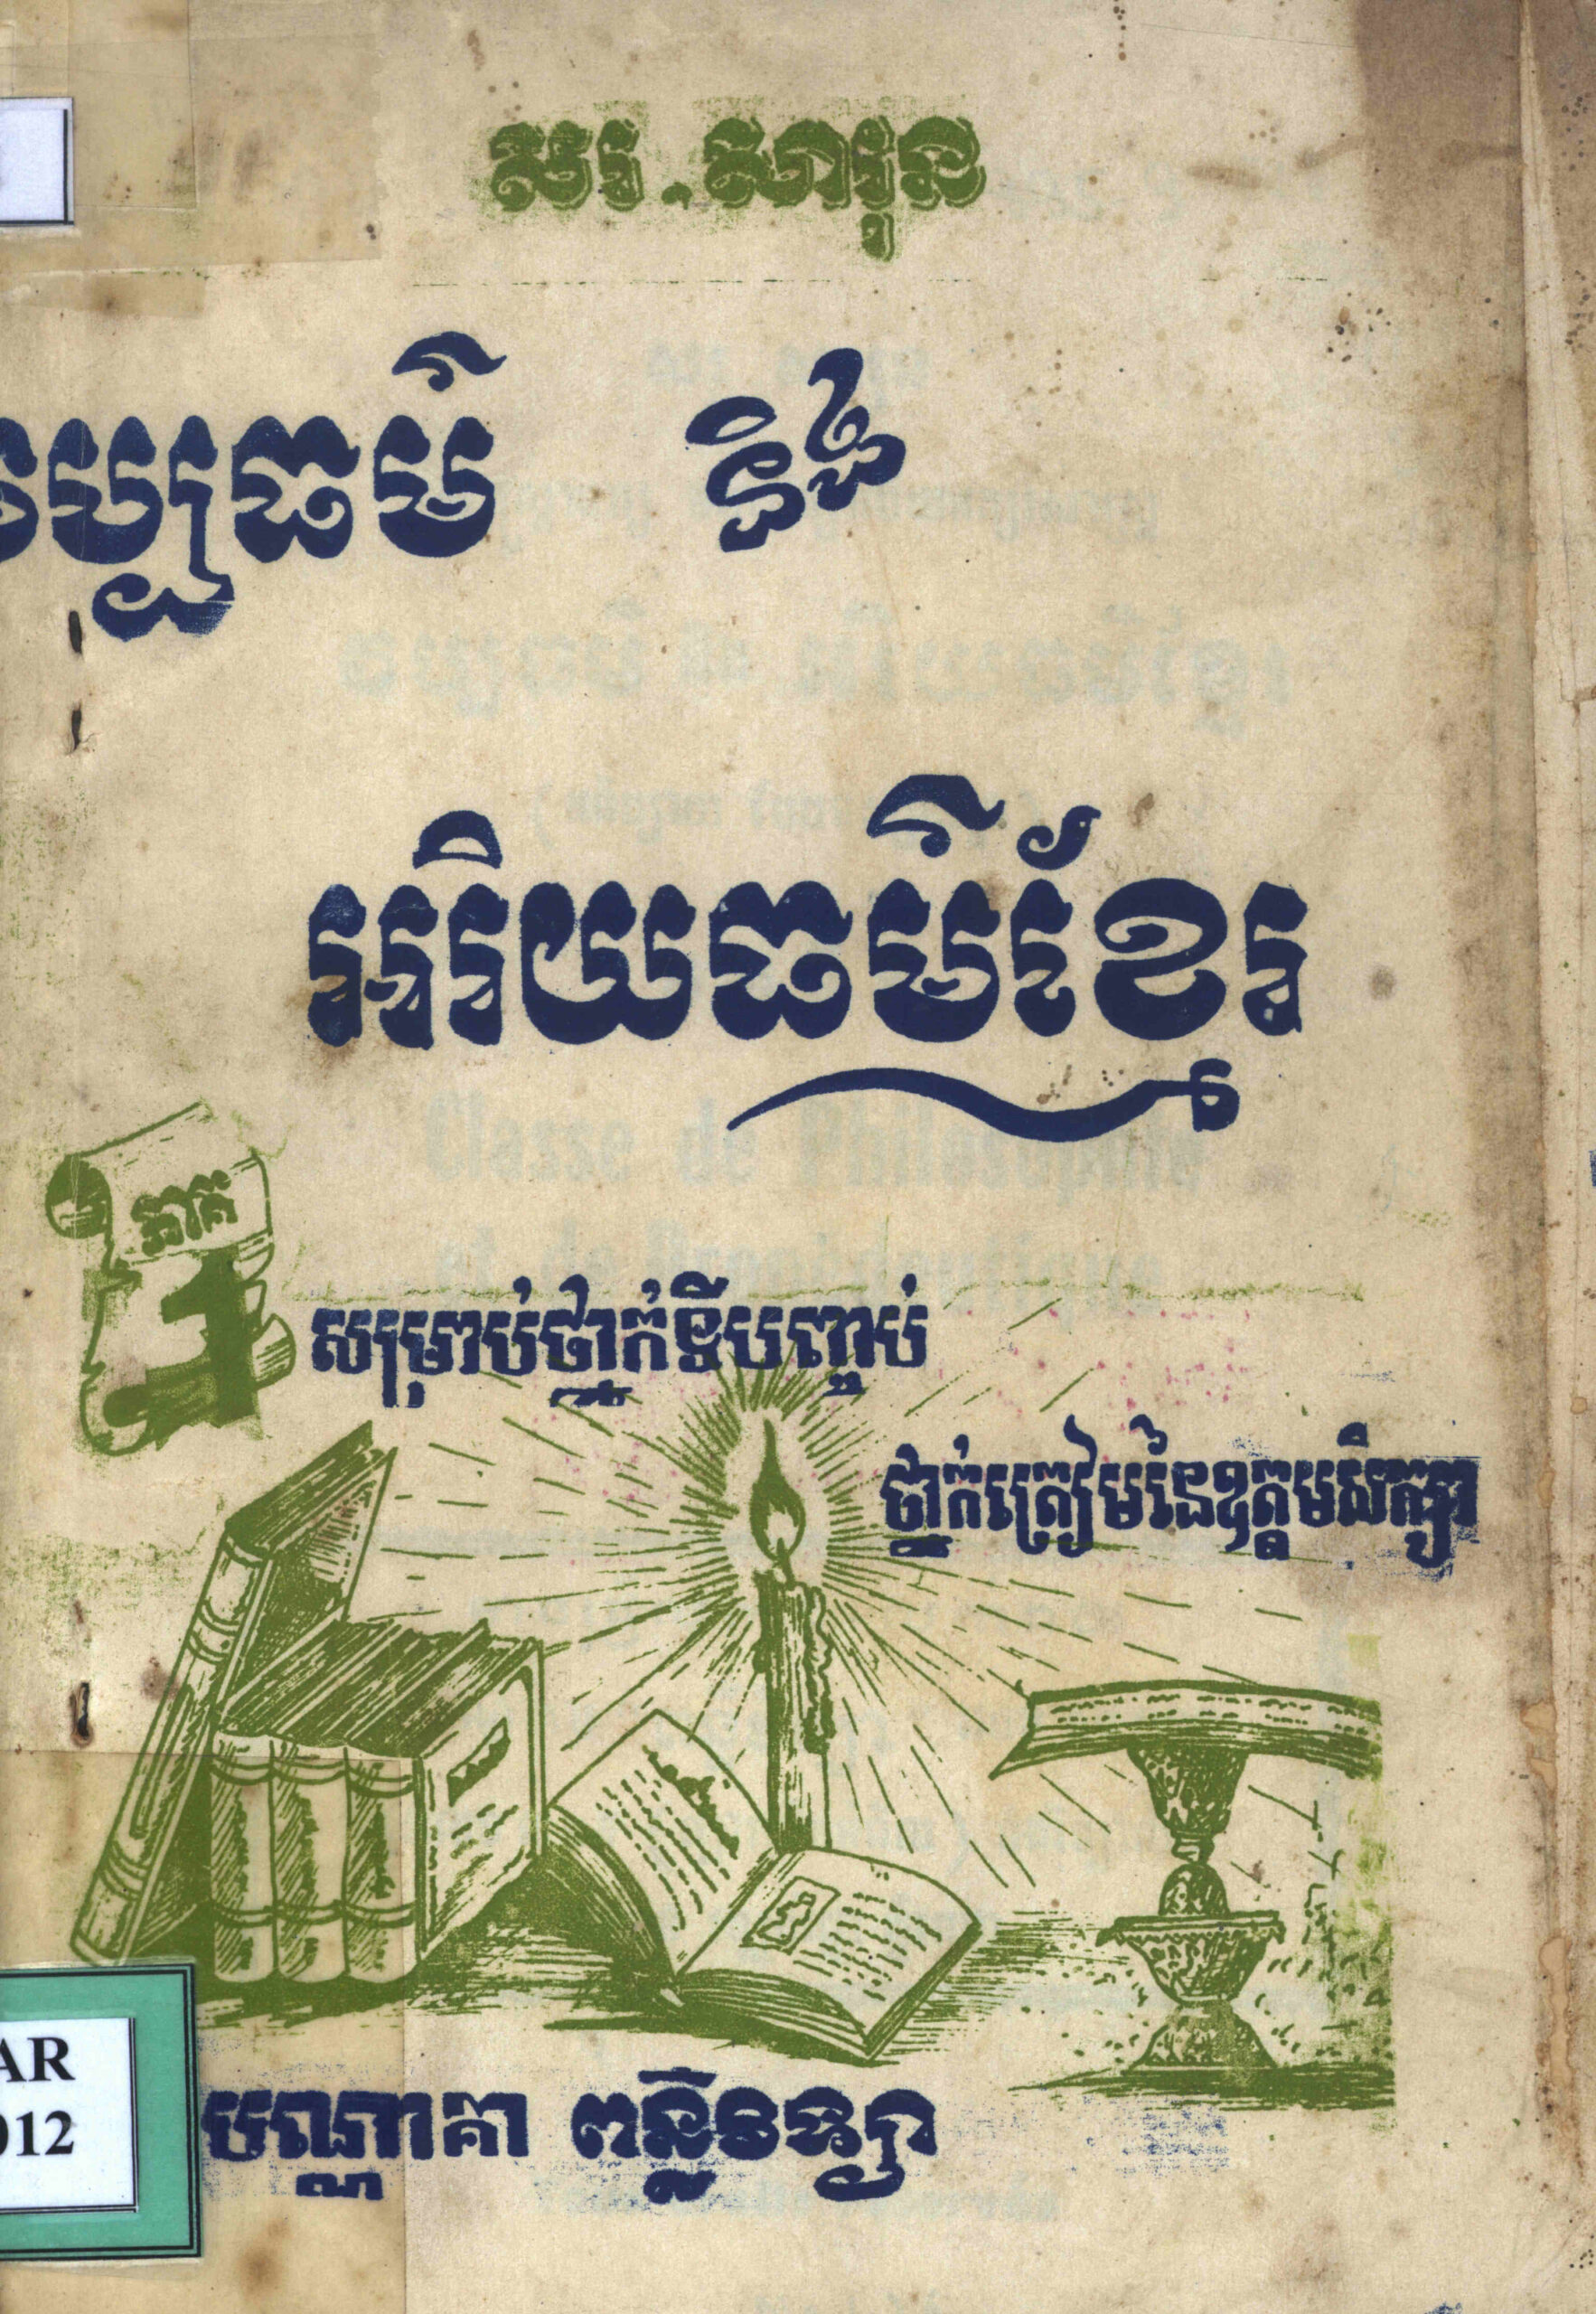 សរ.សារុន
វប្បធម៌ និង
អារិយធម៌ខ្មែរ
ភាគ
1
សម្រាប់ថ្នាក់ទីបញ្ចប់
ថ្នាក់ត្រៀមនៃឧត្តមសិក្សា
AR
012
បណ្ណាគា ពន្លឺវិទ្យា